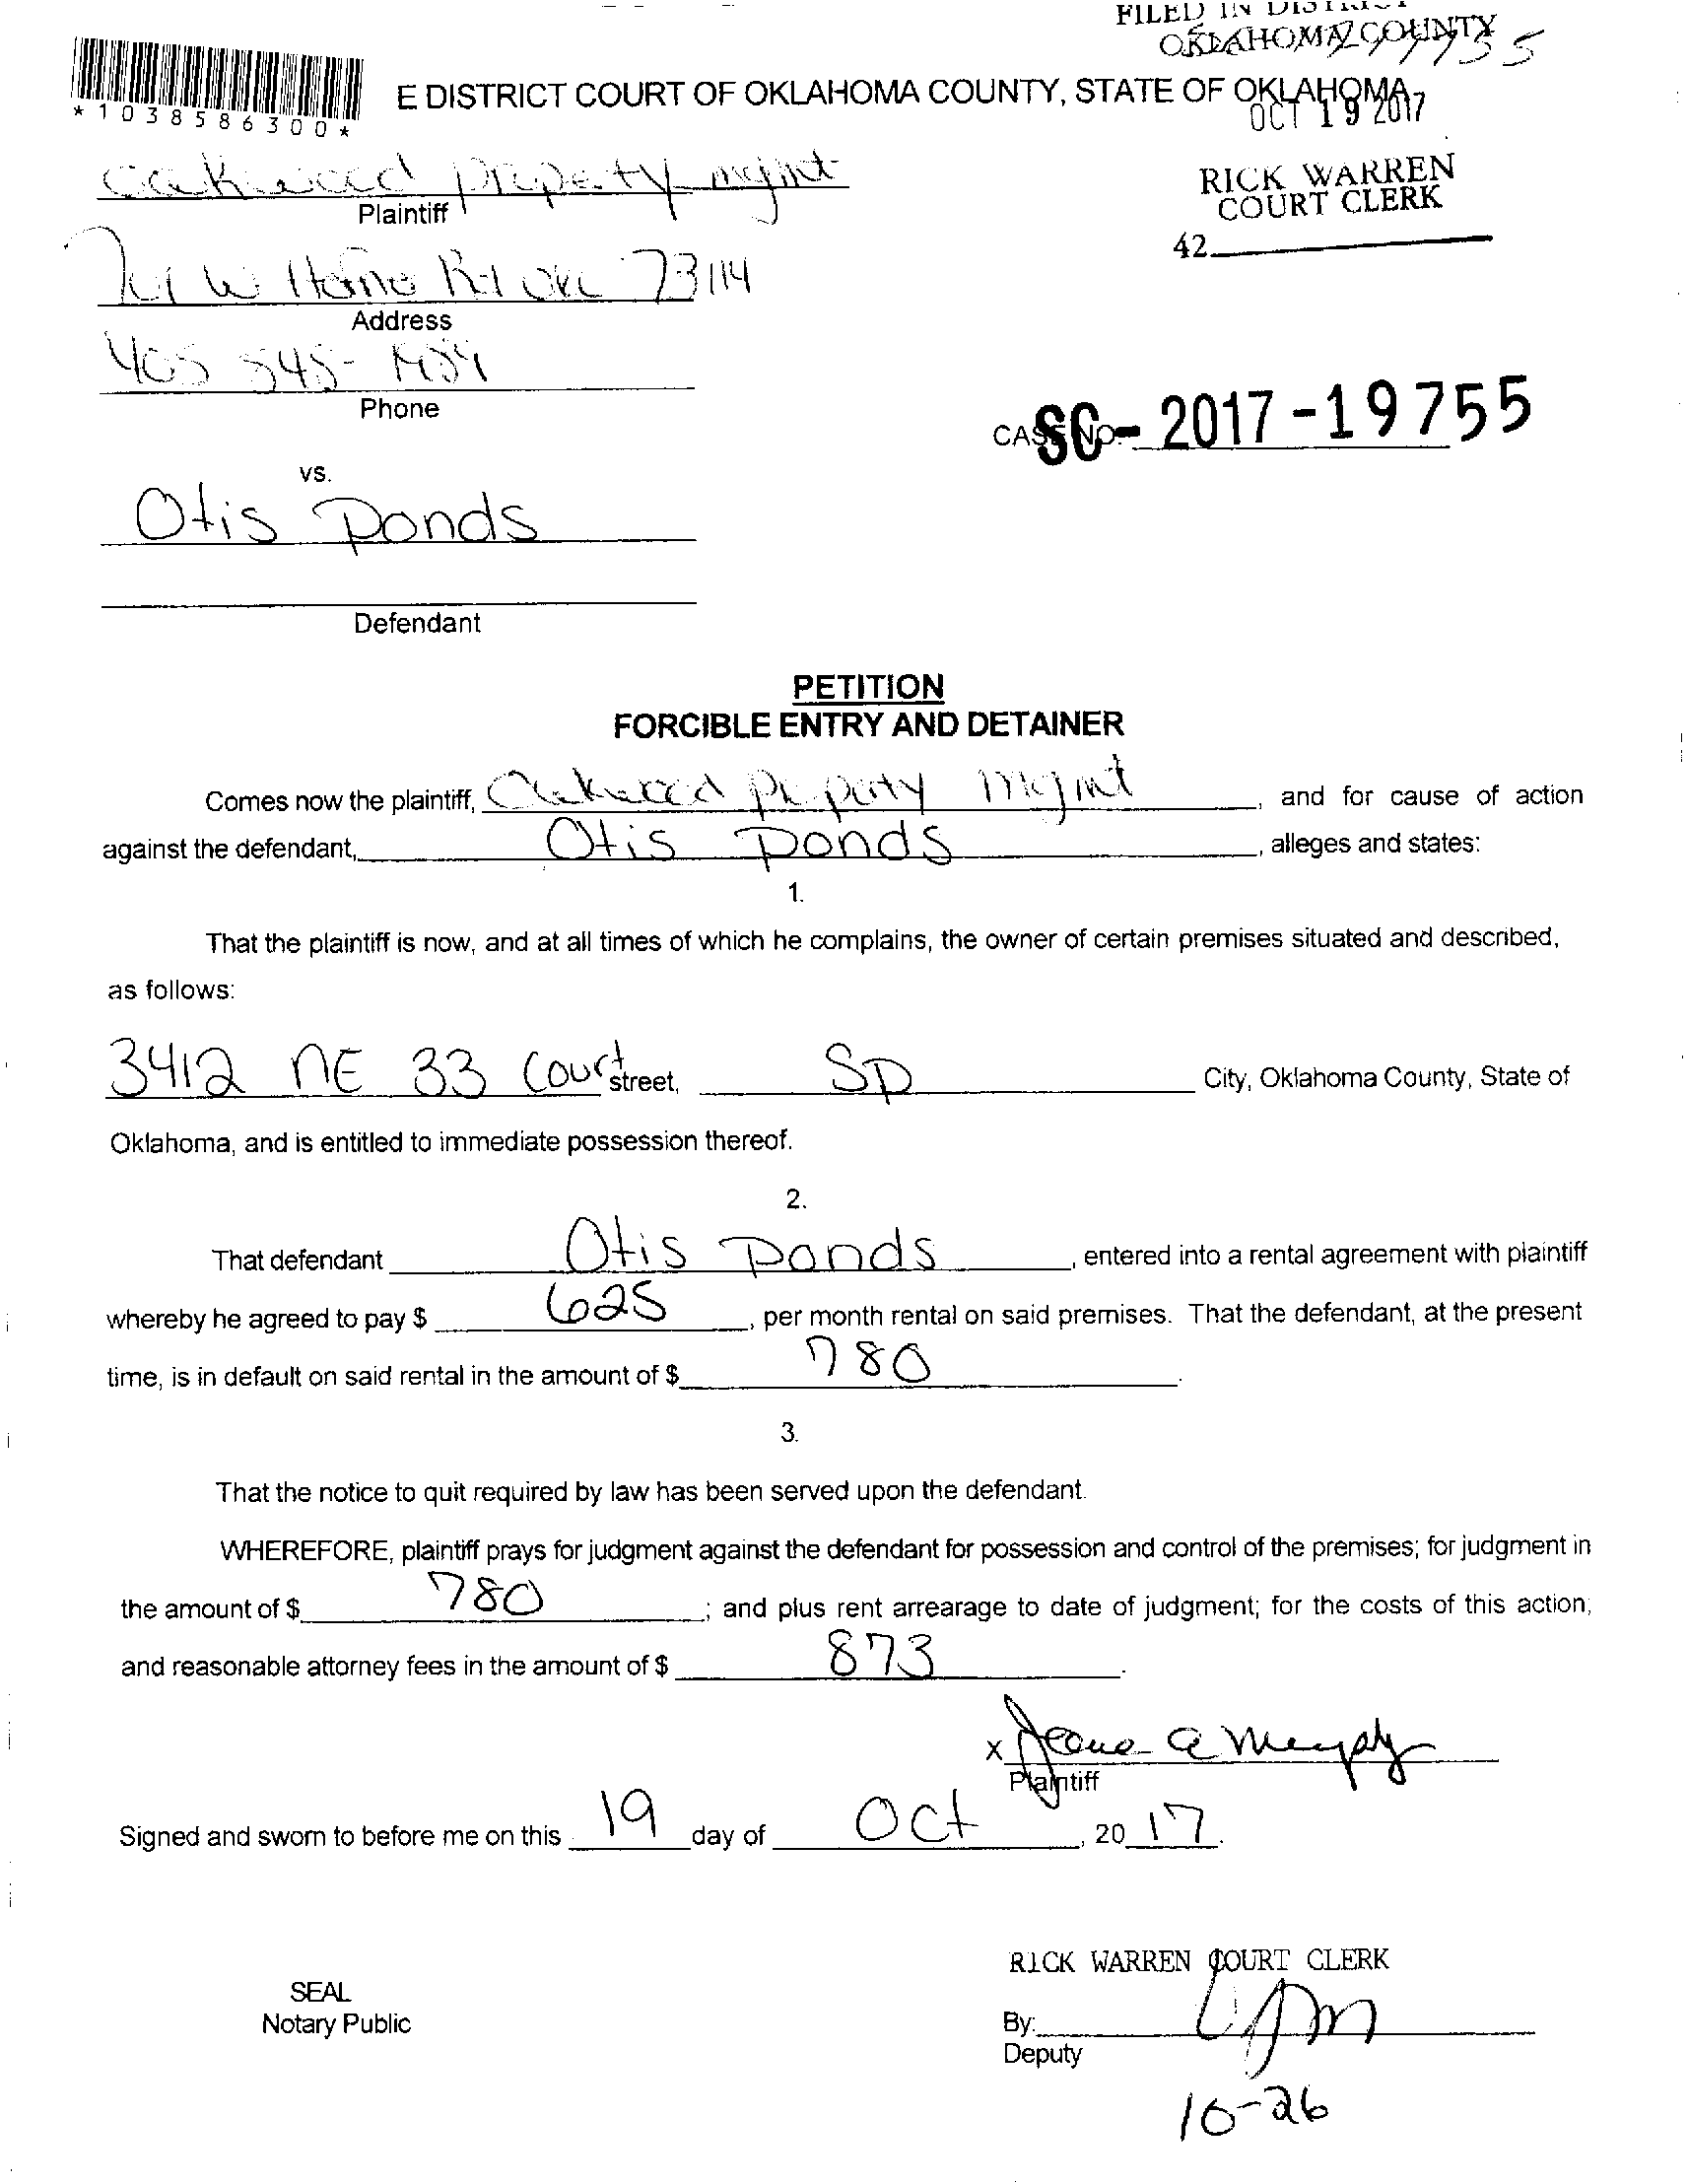 FILED IN DISTRICT
OKLAHOMA COUNTY
*1038586300*
E DISTRICT COURT OF OKLAHOMA COUNTY, STATE OF OKLAHOMA
OCT 19 2017
Oakwood Property mgmt
Plaintiff
RICK WARREN
COURT CLERK
42
W Hefner Rd OKC 73114
Address
405 545-
Phone
CASE NO. SC- 2017-19755
vs.
Otis Ponds
Defendant
PETITION
FORCIBLE ENTRY AND DETAINER
Comes now the plaintiff, Oakwood Property Mgmt, and for cause of action
against the defendant, Otis Ponds, alleges and states:
1.
That the plaintiff is now, and at all times of which he complains, the owner of certain premises situated and described,
as follows:
3412 NE 33 Court street, SP City, Oklahoma County, State of
Oklahoma, and is entitled to immediate possession thereof.
2.
That defendant Otis Ponds, entered into a rental agreement with plaintiff
whereby he agreed to pay $ 625, per month rental on said premises. That the defendant, at the present
time, is in default on said rental in the amount of $ 780.
3.
That the notice to quit required by law has been served upon the defendant.
WHEREFORE, plaintiff prays for judgment against the defendant for possession and control of the premises; for judgment in
the amount of $ 780; and plus rent arrearage to date of judgment; for the costs of this action;
and reasonable attorney fees in the amount of $ 873.
x Jeana a Murphy
Plaintiff
Signed and sworn to before me on this 19 day of Oct, 20 17.
RICK WARREN COURT CLERK
SEAL
Notary Public
By:
Deputy
10-26